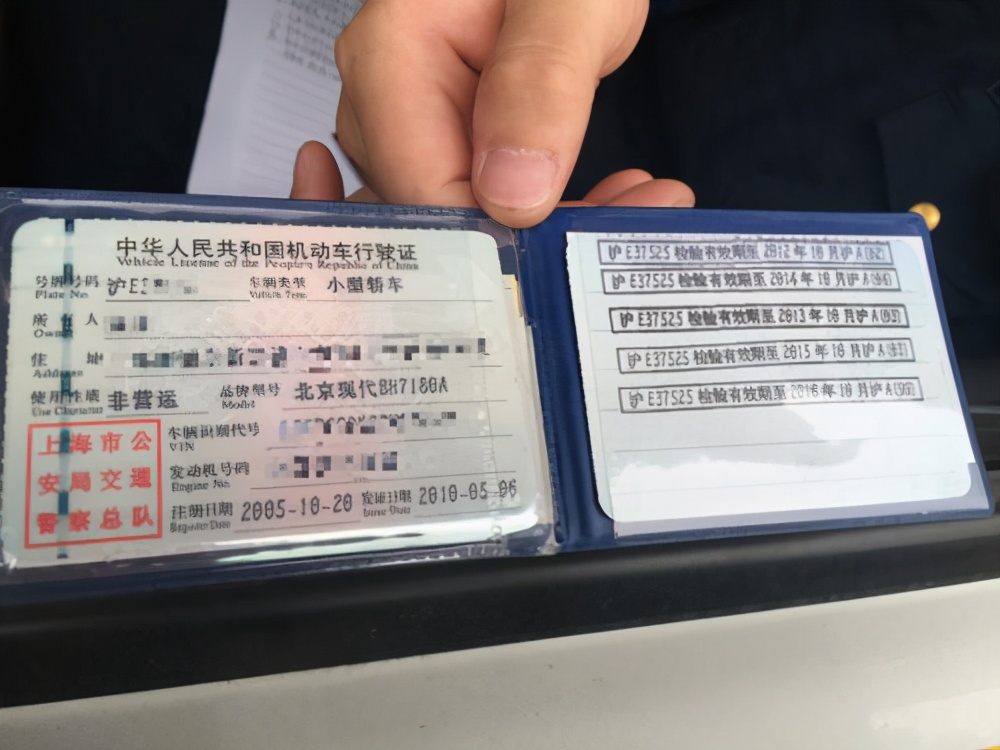 中华人民共和国机动车行驶证
Vehicle License of the People's Republic of China
号牌号码 沪E 车辆类型 小型轿车
Plate No. Vehicle Type
所有人
Owner
住 址
Address
使用性质 非营运 品牌型号 北京现代BH7180A
Use Character Model
车辆识别代号
VIN
发动机号码
Engine No.
注册日期 2005-10-20 发证日期 2010-05-06
Register Date Issue Date
上海市公
安局交通
警察总队
沪E37525 检验有效期至 2012年10月沪A
沪E37525 检验有效期至 2014年10月沪A
沪E37525 检验有效期至 2013年10月沪A
沪E37525 检验有效期至 2015年10月沪A
沪E37525 检验有效期至 2016年10月沪A